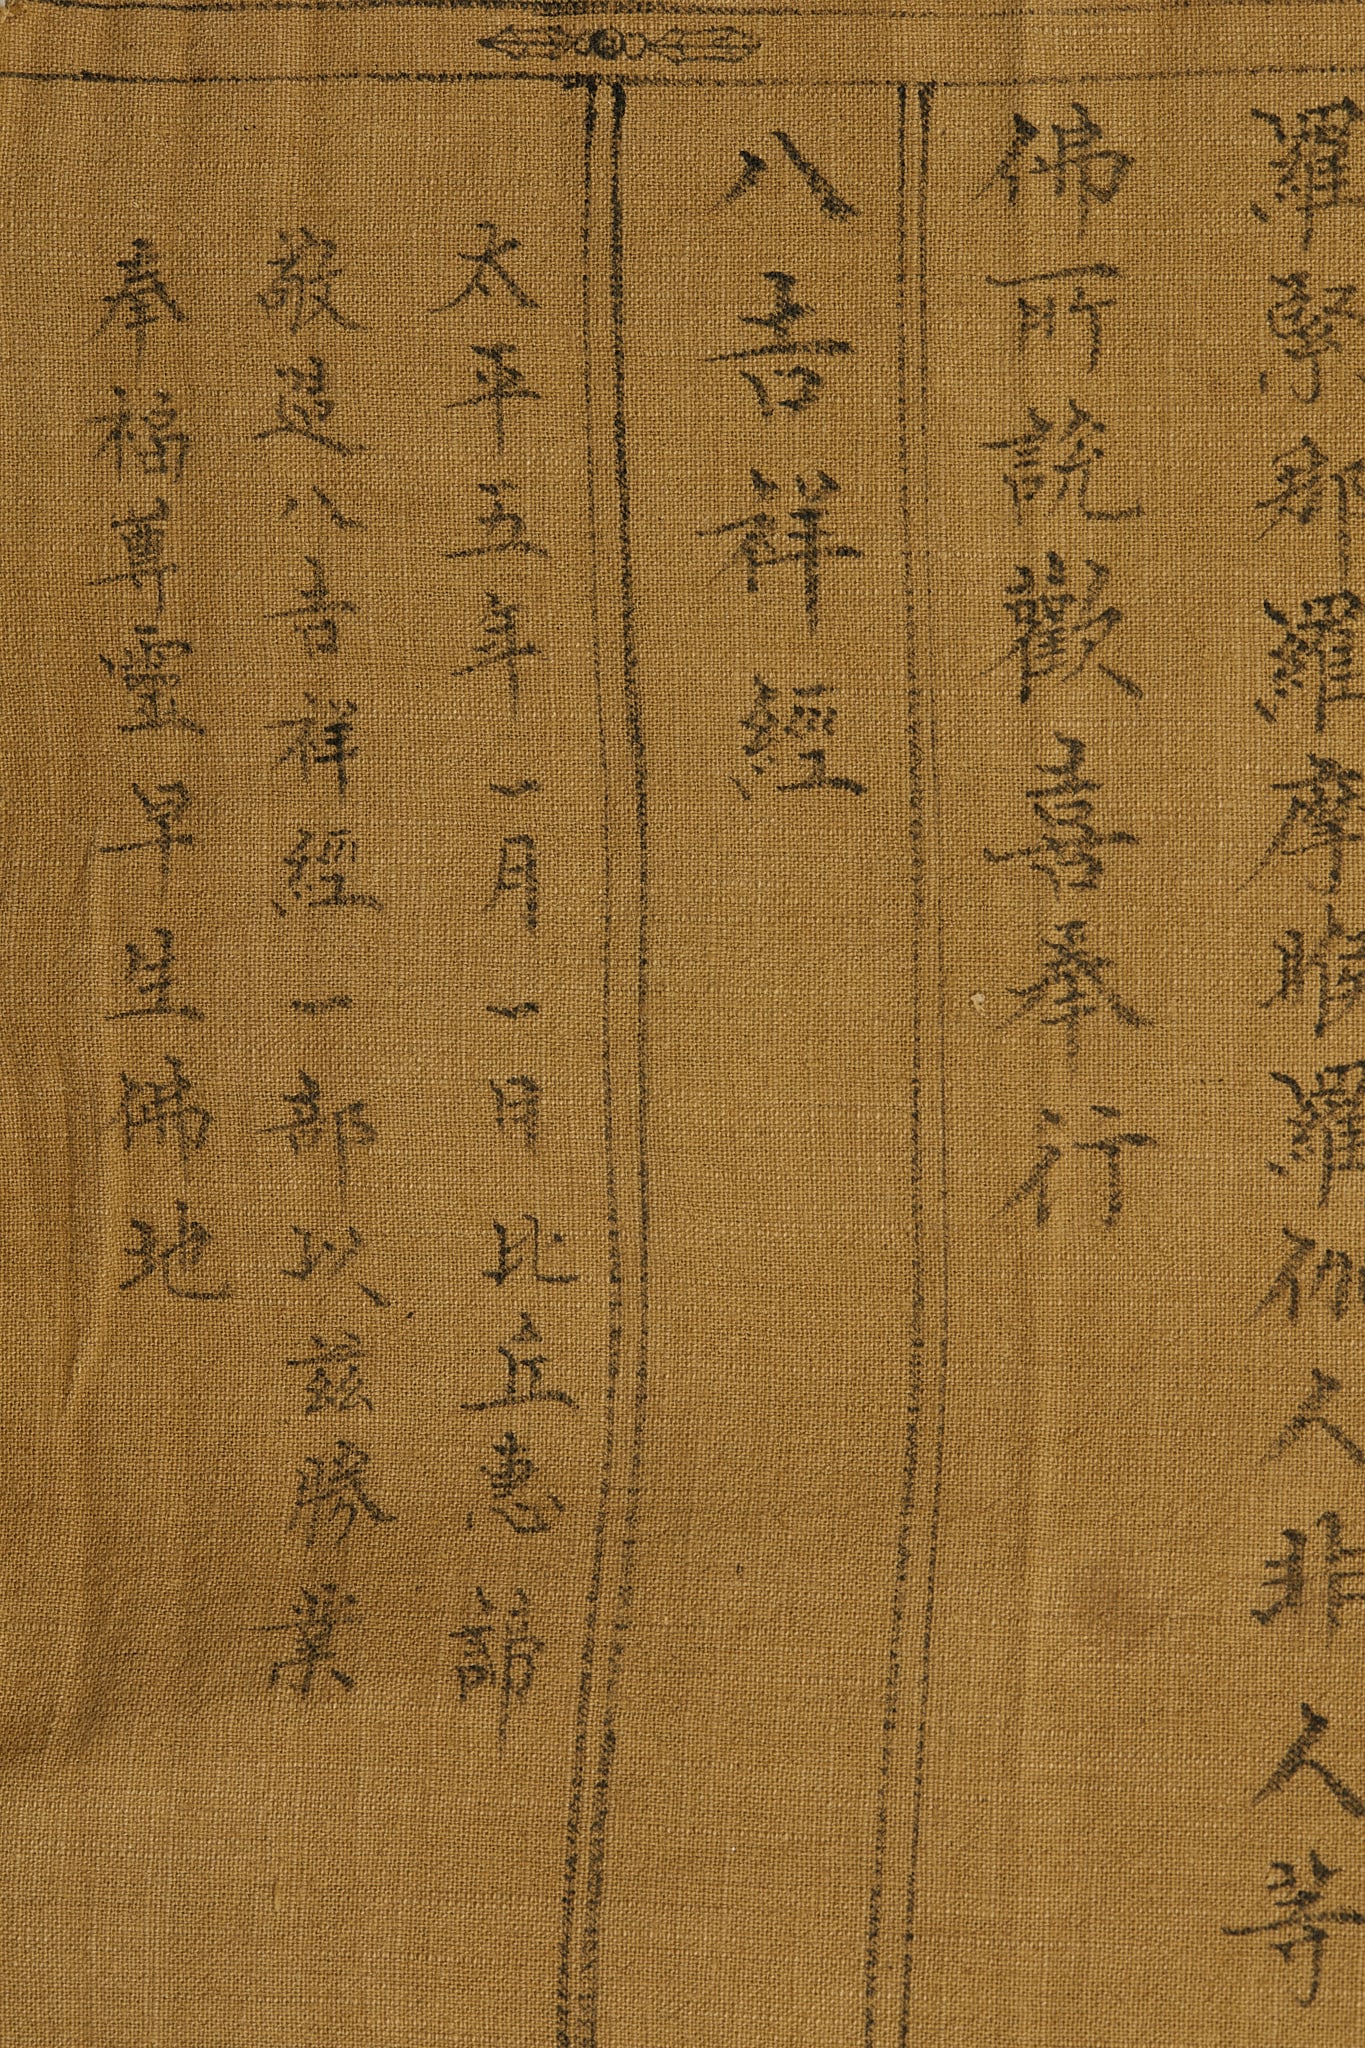 羅那羅摩睺羅伽人非人等
佛所說歡喜奉行
八吉祥經
太平五年一月一日比丘惠諦
敬造八吉祥經一部以茲勝業
奉福尊靈早生佛地